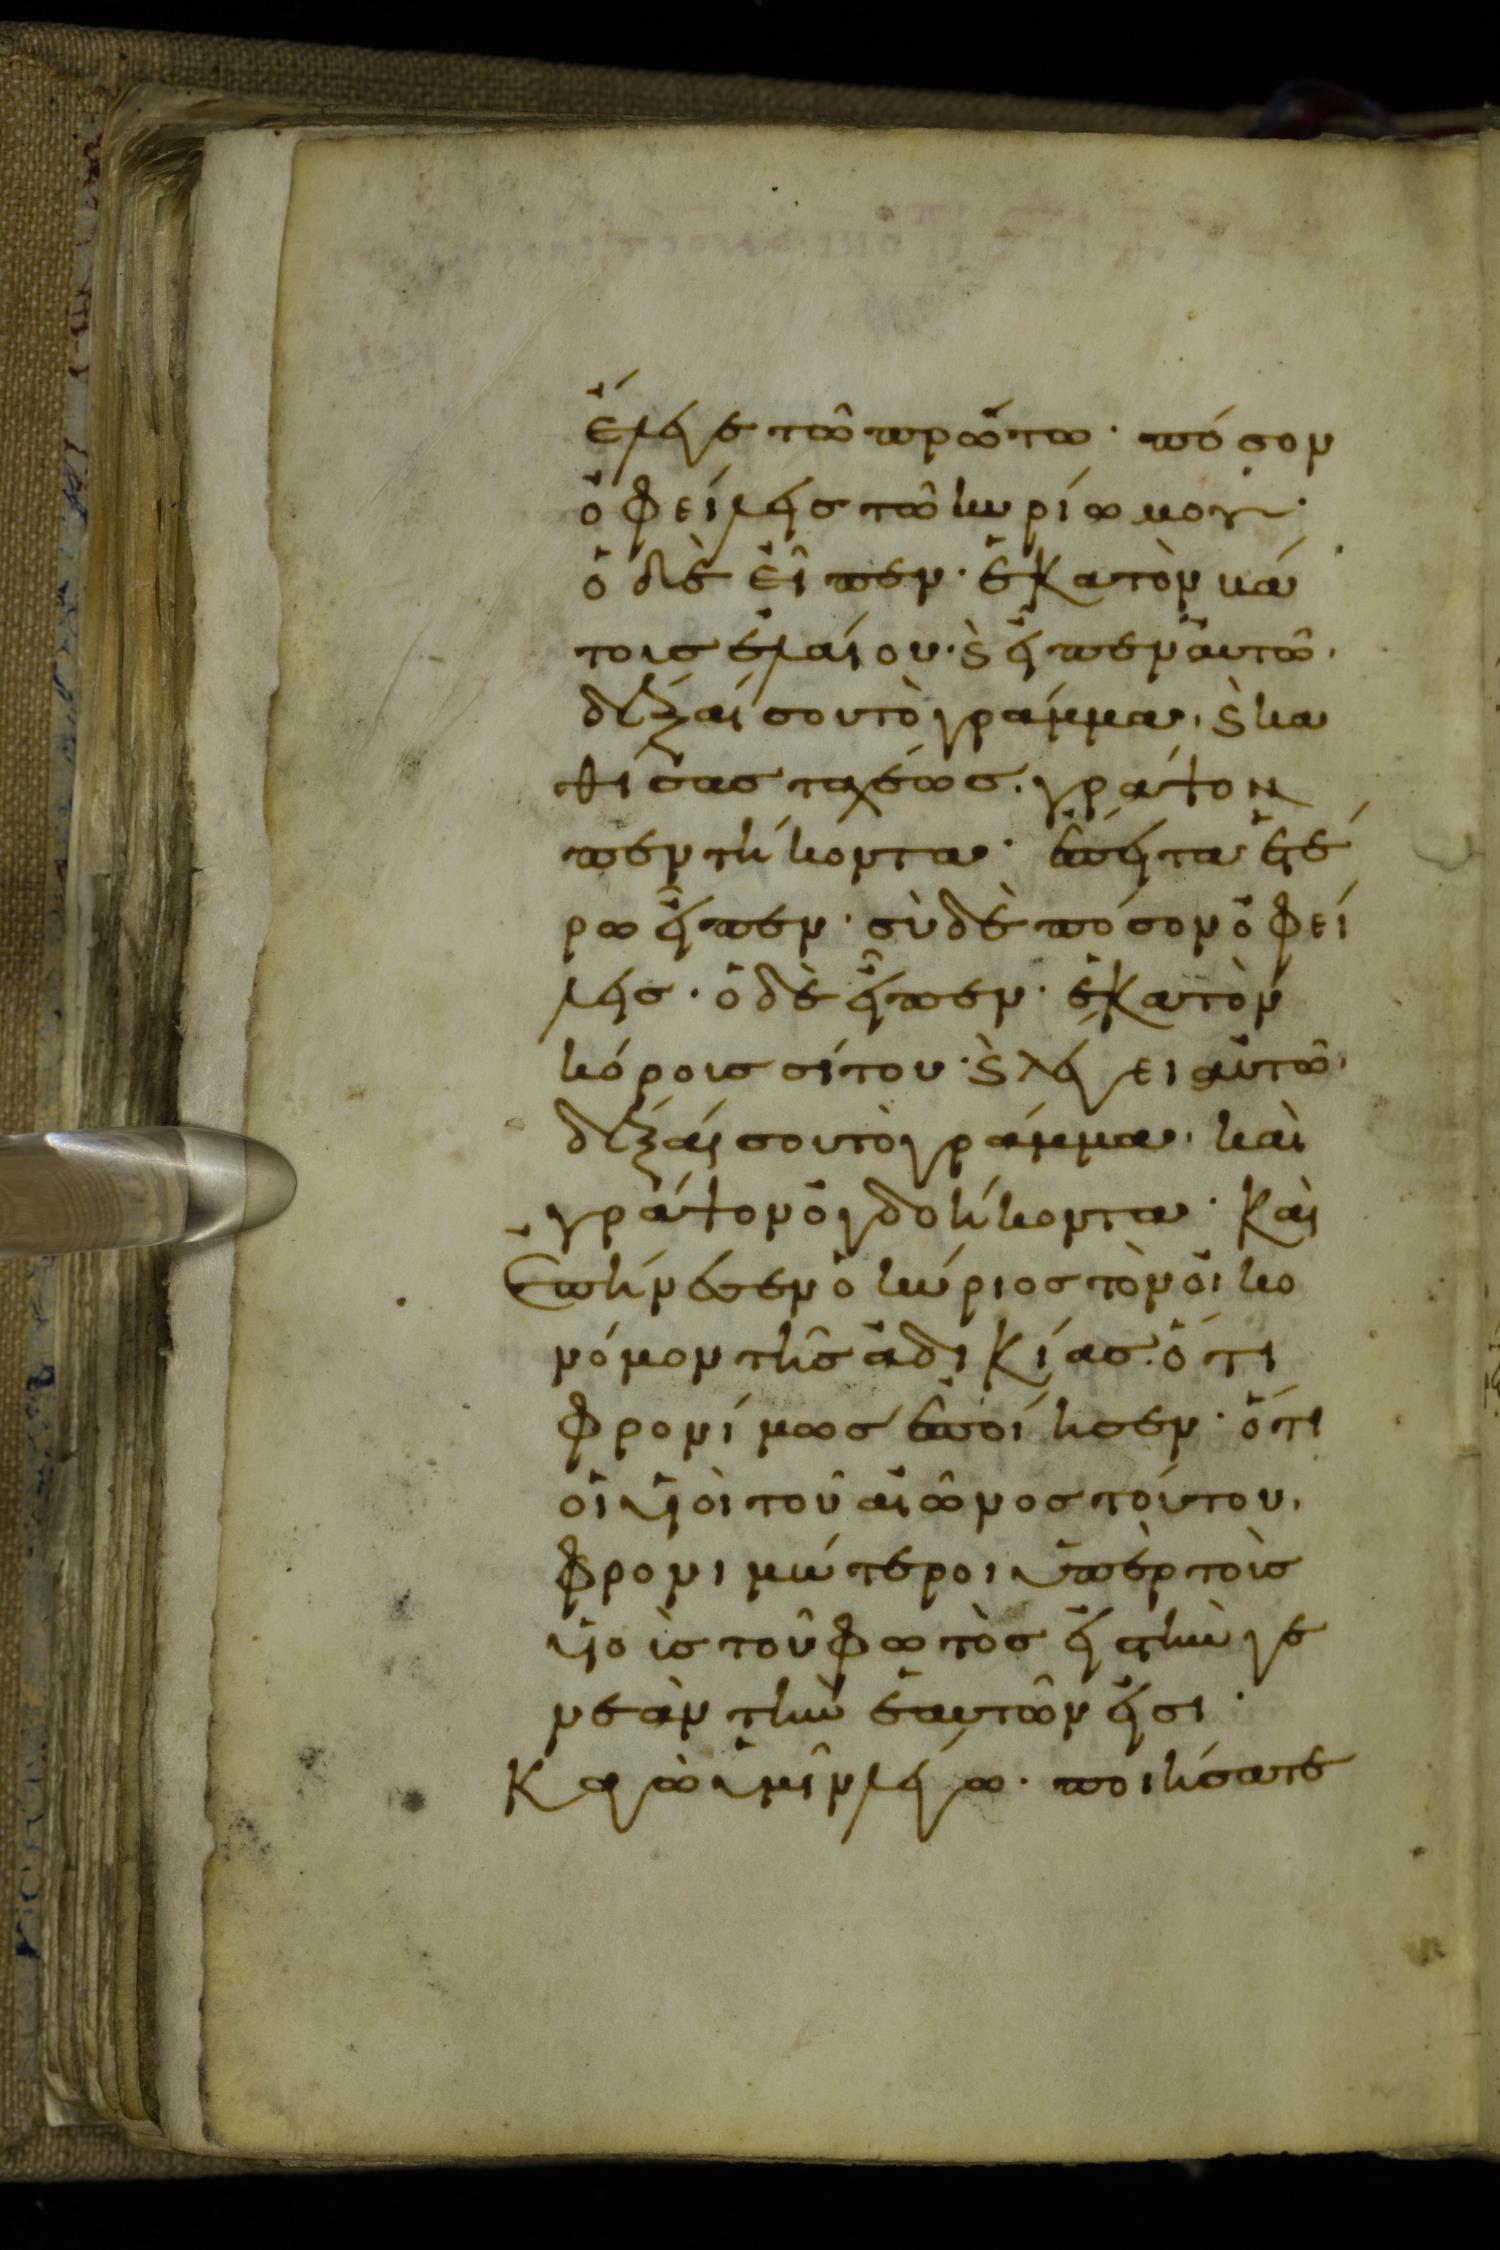 ἔλεγε τῶ πρώτω· πόσον
ὀφείλεισ τῶ κυρίω μου·
ὁ δὲ εἶπεν· ἑκατὸν κά
τουσ ἐλαίου· ϗ εἶπεν αὐτῶ·
δέξαι σου τὸ γράμμα, ϗ κα
θίσασ ταχέωσ· γράψον
πεντήκοντα· ἔπειτα ἑτέ
ρω εἶπεν· σὺ δὲ πόσον ὀφεί
λεισ· ὁ δὲ εἶπεν· ἑκατὸν
κόρουσ σίτου· ϗ λέγει αὐτῶ·
δέξαι σου τὸ γράμμα, καὶ
γράψον ὀγδοήκοντα· καὶ
ἐπήνεσεν ὁ κύριοσ τὸν οἰκο
νόμον τῆσ ἀδικίασ· ὅτι
φρονίμωσ ἐποίησεν· ὅτι
οἱ υἱοὶ τοῦ αἰῶνοσ τούτου,
φρονιμώτεροι ὑπὲρ τοὺσ
υἱοὺσ τοῦ φωτὸσ εἰσ τὴν γε
νεὰν τὴν ἑαυτῶν εἰσι·
Κἀγὼ ὑμῖν λέγω· ποιήσατε